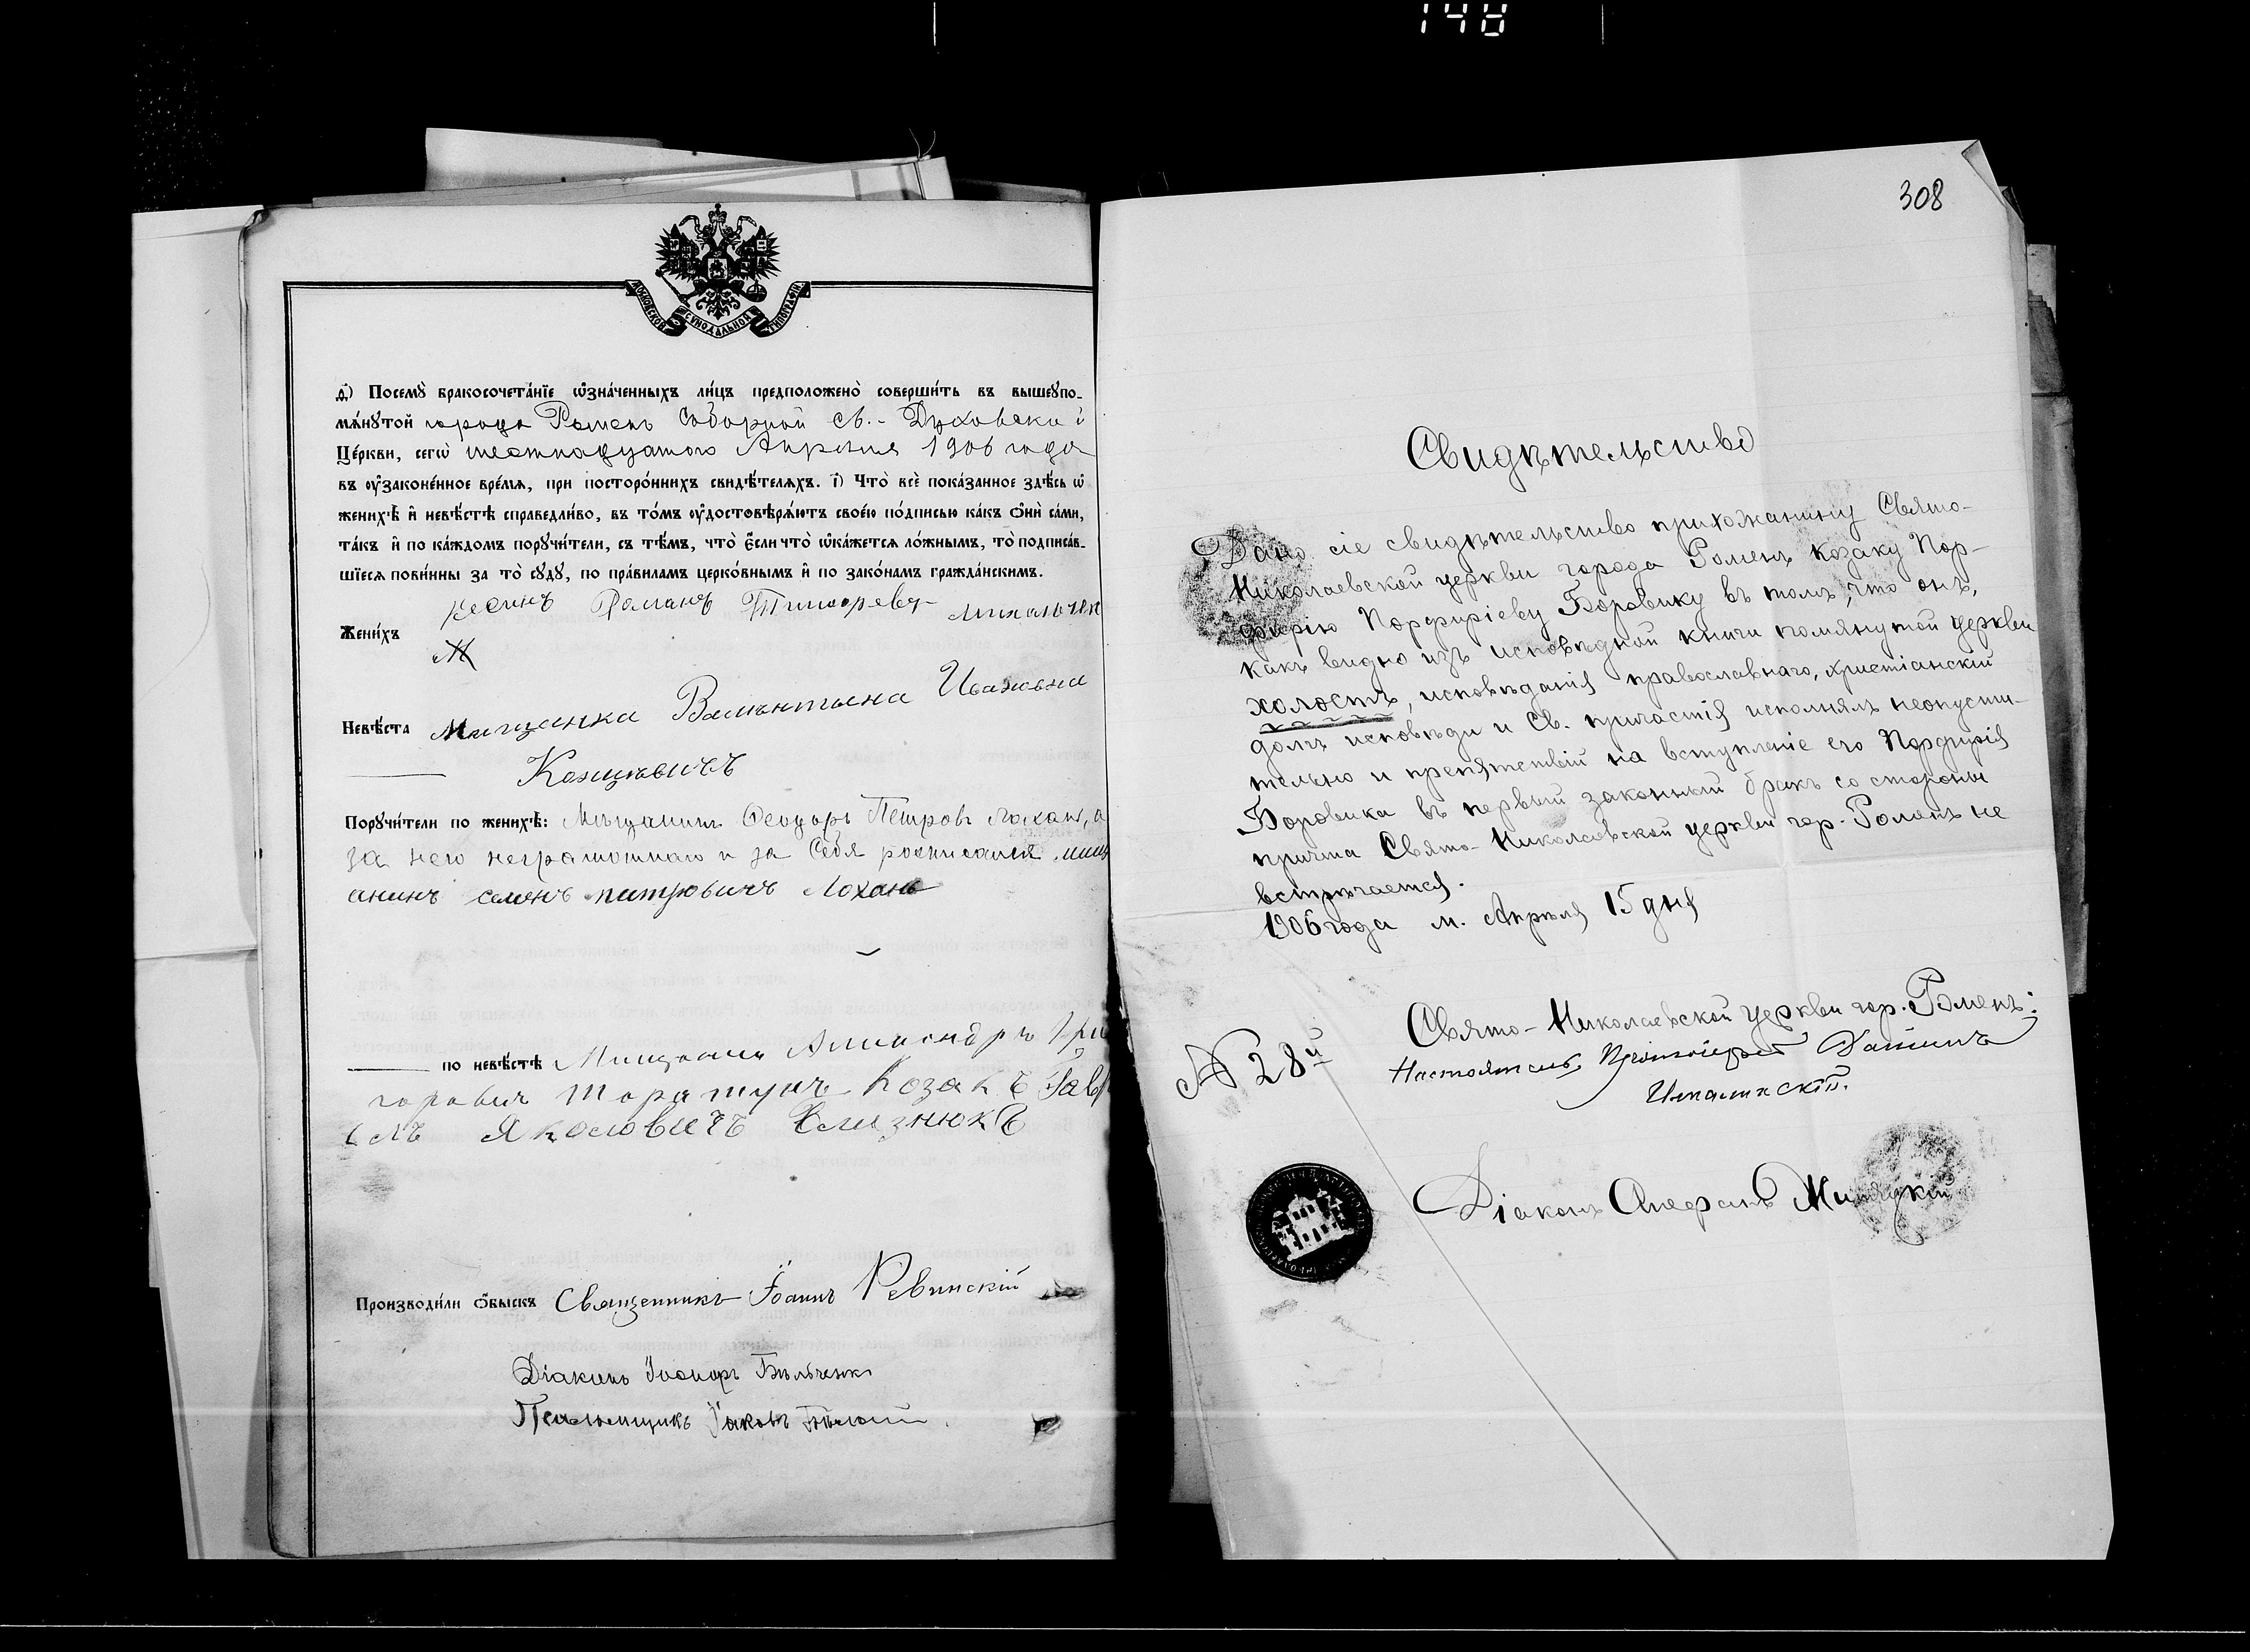 148
МОСКОВСКОЙ СѴНОДАЛЬНОЙ ТИПОГРАФІИ
д҃) Посемꙋ̀ бракосочета́нїе ѡ҆зна́ченныхъ ли́цъ предположено̀ соверши́ть въ вышеꙋпо-
мѧ́нꙋтой города Роменъ Соборной Св.-Духовской
Це́ркви, сегѡ̀ шестнадцатого Апрѣля 1906 года
въ ᲂу҆законе́нное вре́мѧ, при посторо́ннихъ свидѣ́телѧхъ. і҃) Что̀ всѐ пока́занное здѣ́сь ѡ҆
женихѣ̀ и҆ невѣ́стѣ справедли́во, въ то́мъ ᲂу҆достовѣрѧ́ютъ свое́ю по́дписью ка́къ ѻ҆нѝ са́ми,
та́къ и҆ по ка́ждомъ порꙋчи́тели, съ тѣ́мъ, что̀ є҆́сли что̀ ѡ҆ка́жетсѧ ло́жнымъ, то̀ подписа́в-
шїесѧ пови́нны за то̀ сꙋдꙋ̀, по пра́виламъ церко́внымъ и҆ по зако́намъ гражда́нскимъ.
Жени́хъ Романъ
М
Невѣ́ста Мищанка Валентына Ивановна
Козицкевичъ
Порꙋчи́тели по женихѣ̀: Мѣщанинъ Ѳеодоръ Петровъ Лохань, а
за него неграмотнаго и за себя росписался мищ
анинъ семенъ питровичъ Лохань
по невѣ́стѣ Мищанинъ Александръ Гри
горовичъ Таратунъ Козакъ Гавр
илъ Яковловичъ Близнюкъ
Производи́ли ѻ҆́быскъ Священникъ Іоаннъ Ревинскій
Діаконъ Бѣльченко
Псаломщикъ Іаковъ
308
Свидѣтельство
Дано сіе свидѣтельство прихожанину Свято-
Николаевской церкви города Роменъ козаку Пор-
фирію Порфиріеву Боровику въ томъ, что онъ,
какъ видно изъ исповѣдной книги помянутой церкви
холостъ, исповѣданія православнаго, христіанскій
долгъ исповѣди и Св. причастія исполнялъ неопусти-
тельно и препятствій на вступленіе его Порфирія
Боровика въ первый законный бракъ со стороны
причта Свято-Николаевской церкви гор. Роменъ не
встрѣчается.
1906 года м. Апрѣля 15 дня
Свято-Николаевской церкви гор. Роменъ:
№ 28й
Настоятель, Протоіерей
Діаконъ